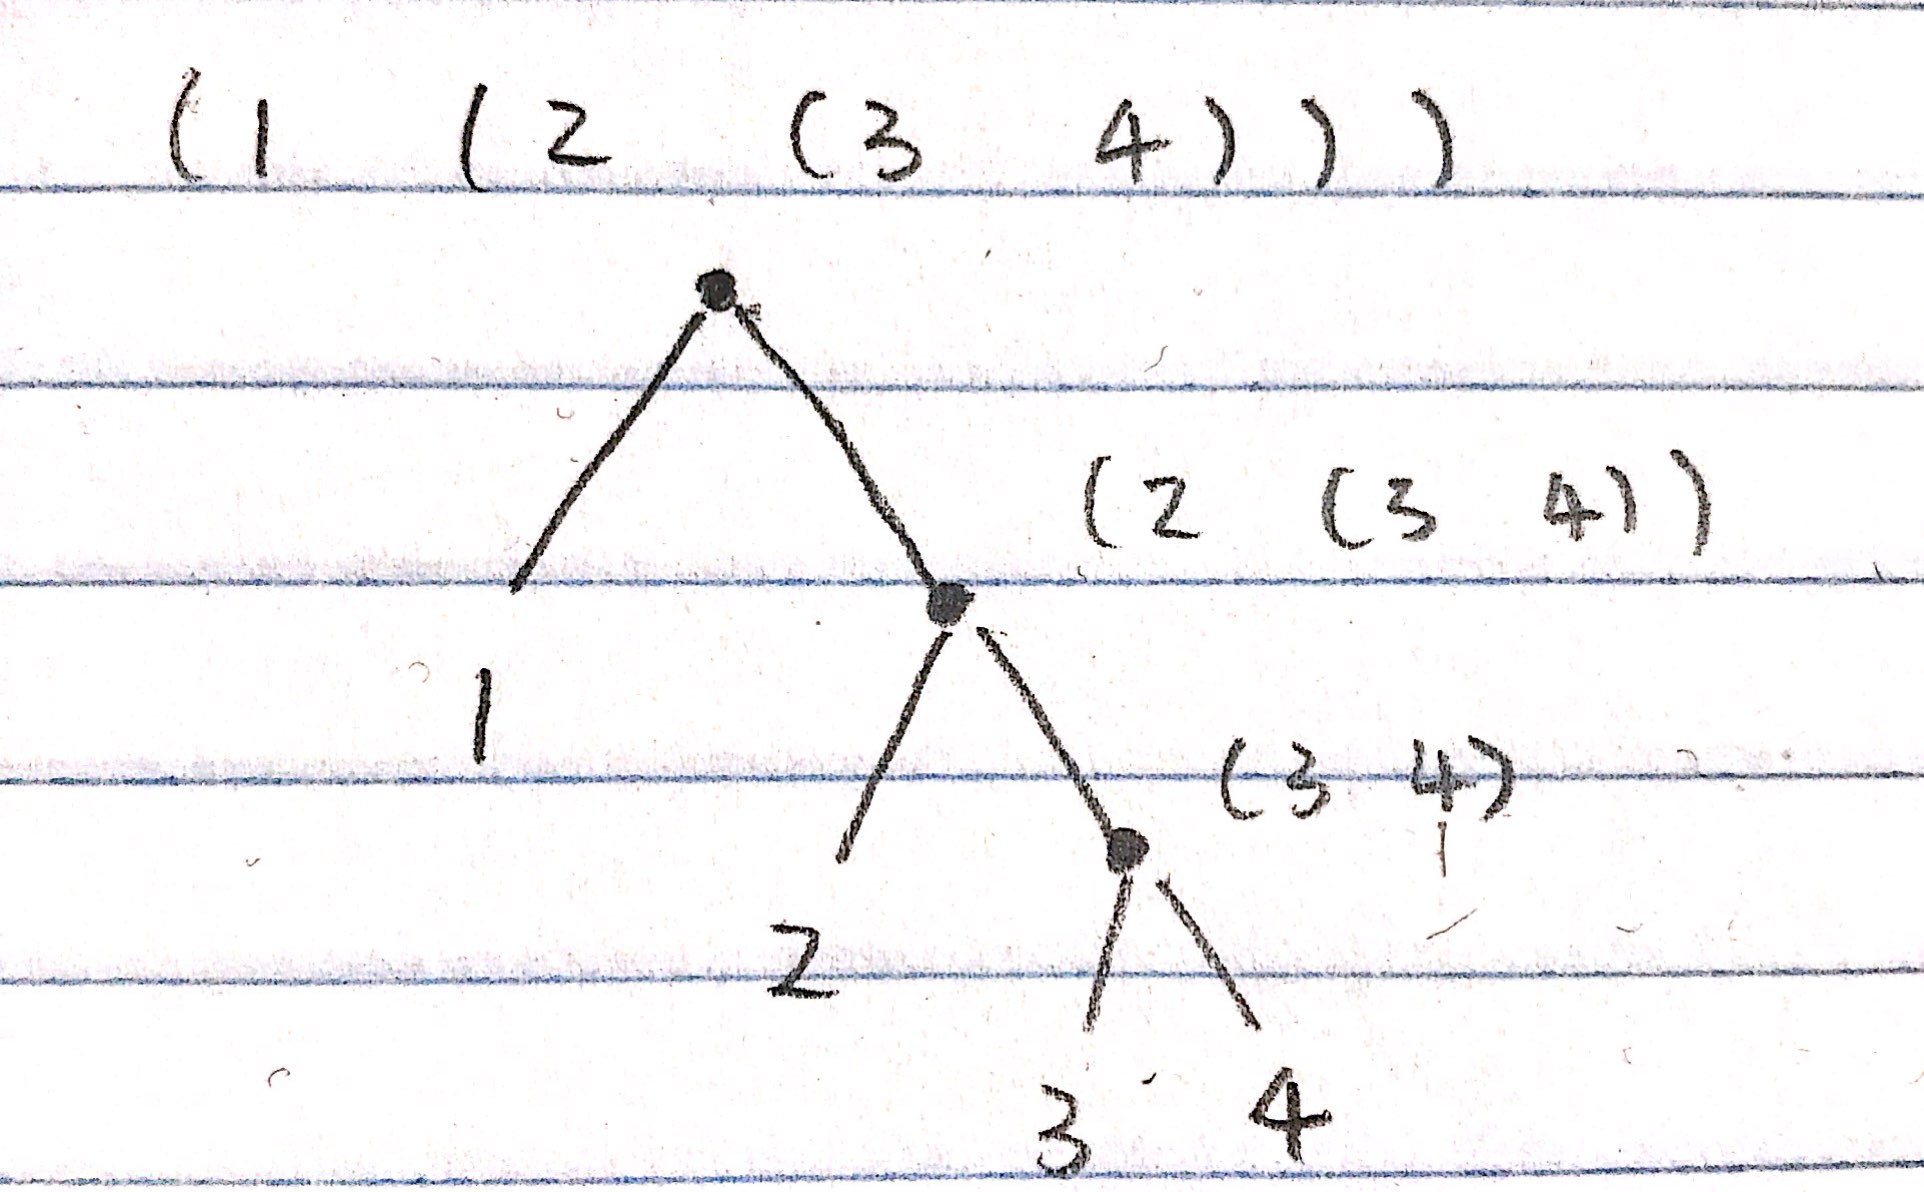 (1 (2 (3 4)))
(2 (3 4))
1
(3 4)
2
3 4